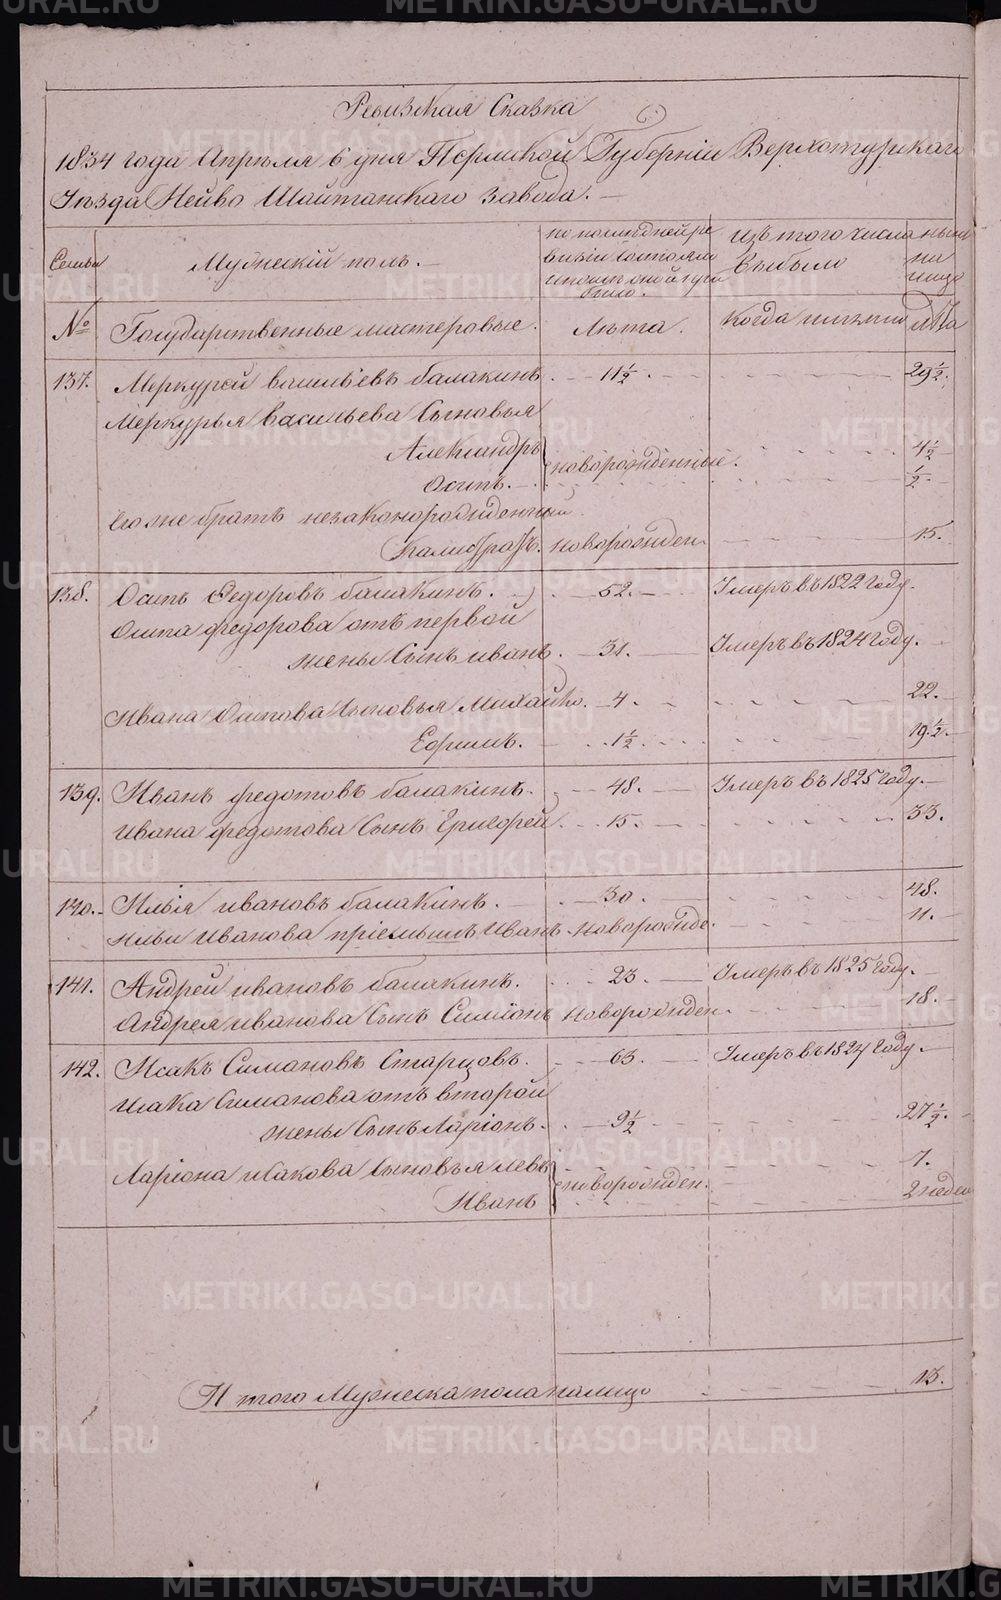 Ревизкая Сказка
1834 года Апреля 6 дня Пермской Губернiи Верхотурскаго
Уезда Нейво Шайтанскаго завода. —
Семьи
Мужескiй полъ. —
по последней ре
визiи состояло
и после оной
было.
Изъ того числа
Выбыло
ныне
на
лицо
№
Государственные мастеровые.
Лѣта.
Когда именно
Лѣта
137. Меркурей васильевъ балакинъ. 11½. 29½.
Меркурья васильева Сыновья
Александръ 4½
Осипъ. новорожденные. ½.
Его же братъ незаконорожденный
новорожден 15.
138. Осипъ Федоровъ балакинъ. 52. Умеръ въ 1822 году.
Осипа федорова отъ первой
жены Сынъ иванъ. 31. Умеръ въ 1824 году.
Ивана Осипова Сыновья Михайло. 4. 22.
Ефимъ. 1½. 19½.
139. Иванъ федотовъ балакинъ. 48. Умеръ въ 1825 году.
Ивана федотова Сынъ Григорей. 15. 33.
140. Илья ивановъ балакинъ. 30. 48.
Ильи Иванова прiемышъ Иванъ новорожде. 11.
141. Андрей ивановъ балакинъ. 23. Умеръ въ 1825 году.
Андрея иванова Сынъ Симiонъ новорожден. 18.
142. Исакъ Симановъ Старцовъ. 63. Умеръ въ 1827 году.
Исака Симанова отъ второй
жены Сынъ Ларiонъ. 9½ 27½.
Ларiона исакова Сыновья левъ 7.
Иванъ новорожден. 2 недел
И того Мужеска пола налицо 13.
METRIKI.GASO-URAL.RU